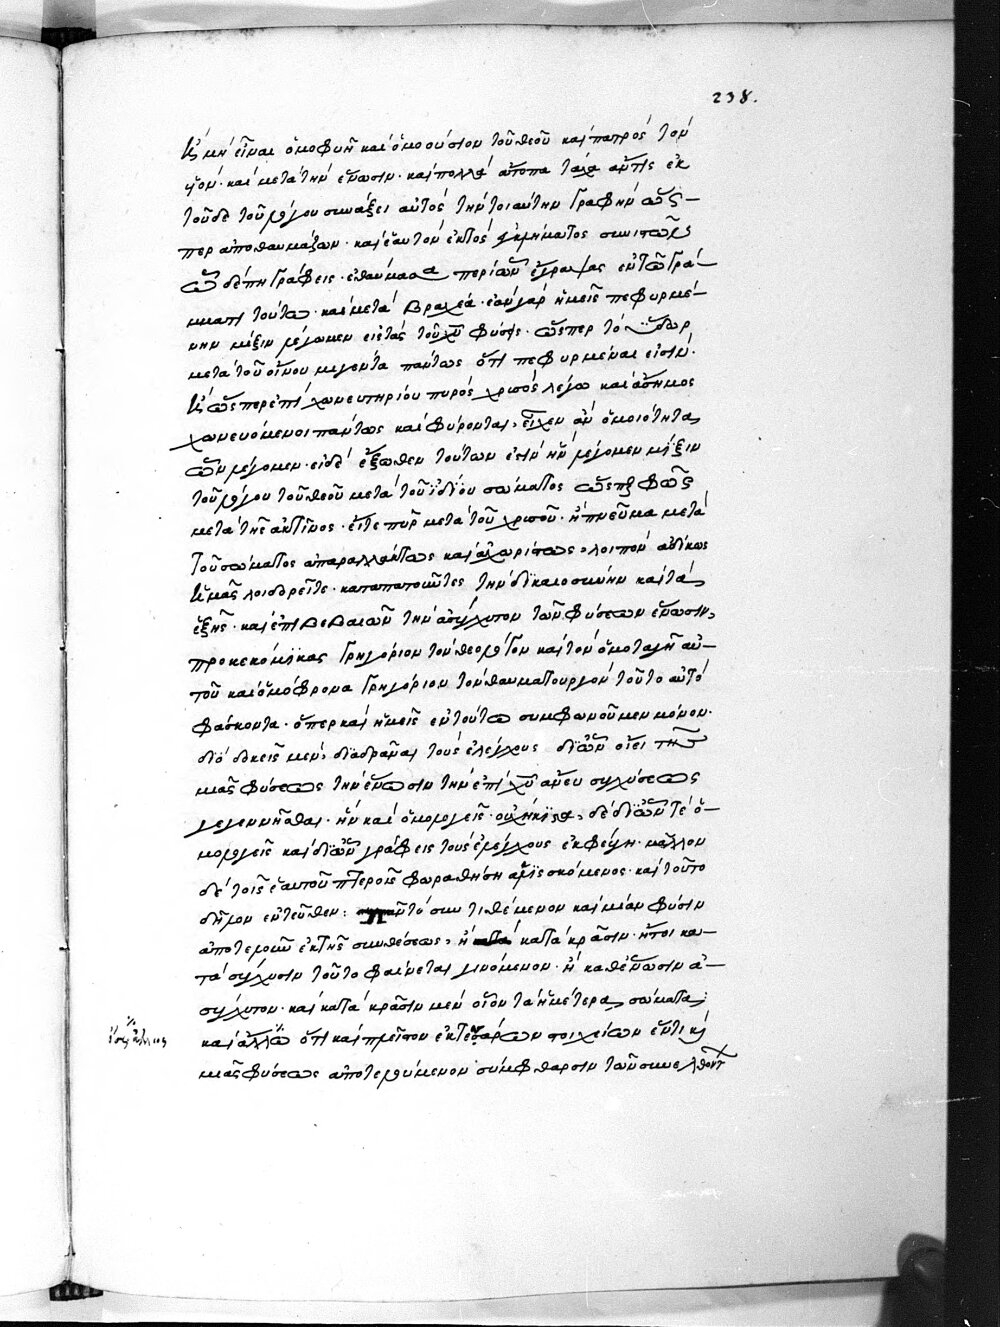 238.
καὶ μὴ εἶναι ὁμοφυῆ καὶ ὁμοούσιον τοῦ θεοῦ καὶ πατρὸς τὸν
υἱόν· καὶ μετὰ τὴν ἕνωσιν· καὶ πολλὰ ἄτοπα τὰ ἐκ
τοῦδε τοῦ λόγου συνάξει αὐτὸς τὴν τοιαύτην γραφὴν ὥσ-
περ ἀποθαυμάζων· καὶ ἑαυτὸν ἐκτὸς ἐγκλήματος συνιστῶν
ὧδέπη γράφεις· ἐθαύμασα περὶ ὧν ἔγραψας ἐν τῷ γράμ-
ματι τούτῳ· καὶ μετὰ βραχέα· ἐὰν γὰρ ἡμεῖς πεφυρμέ-
νην μίξιν λέγωμεν εἰς τὰς τοῦ χυ φύσεις· ὥσπερ τὸ ὕδωρ
μετὰ τοῦ οἴνου μιγέντα πάντως ὅτι πεφυρμέναι εἰσίν·
καὶ ὥσπερ ἐπὶ χωνευτηρίου πυρὸς χρυσὸς λέγω καὶ ἄσημος
χωνευόμενοι πάντως καὶ φύρονται, εἶχεν ἂν ὁμοιότητα
ὧν λέγομεν· εἰ δὲ ἔξωθεν τούτων ἐστὶν ἣν λέγομεν μίξιν
τοῦ λόγου τοῦ θεοῦ μετὰ τοῦ ἰδίου σώματος ὥσπερ φῶς
μετὰ τῆς ἀκτῖνος· εἴτε πῦρ μετὰ τοῦ χρυσοῦ· ἢ πνεῦμα μετὰ
τοῦ σώματος ἀπαραλλάκτως καὶ ἀχωρίστως, λοιπὸν ἀδίκως
ἡμᾶς λοιδορεῖτε· καταπατοῦντες τὴν δικαιοσύνην καὶ τὰ
ἑξῆς· καὶ ἐπιβεβαιῶν τὴν ἀσύγχυτον τῶν φύσεων ἕνωσιν,
προκεκόμικας Γρηγόριον τὸν θεολόγον καὶ τὸν ὁμοταγῆ αὐ-
τοῦ καὶ ὁμόφρονα Γρηγόριον τὸν θαυματουργὸν τοῦτο αὐτὸ
φάσκοντα· ὅπερ καὶ ἡμεῖς ἐν τούτῳ συμφωνοῦμεν μόνον·
διὸ δοκεῖς μὲν, διαδρᾶναι τοὺς ἐλέγχους δι' ὧν οἴει τῆς
μιᾶς φύσεως τὴν ἕνωσιν τὴν ἐπὶ χυ ἄνευ συγχύσεως
γεγεννῆσθαι· ἣν καὶ ὁμολογεῖς· οὐχ ἥκιστα, δὲ δι' ὧν τε ὁ-
μολογεῖς καὶ δι' ὧν γράφεις τοὺς ἐλέγχους ἐκφεύγῃ· μᾶλλον
δὲ τοῖς ἑαυτοῦ πτεροῖς φωραθήσῃ ἁλισκόμενος· καὶ τοῦτο
δῆλον ἐντεῦθεν: πᾶν τὸ συντιθέμενον καὶ μίαν φύσιν
ἀποτελοῦν ἐκ τῆς συνθέσεως, ἢ κατὰ κρᾶσιν· ἤτοι κα-
τὰ σύγχυσιν τοῦτο φαίνεται γινόμενον· ἢ καθ' ἕνωσιν ἀ-
σύγχυτον· καὶ κατὰ κρᾶσιν μὲν οἷον τὰ ἡμέτερα σώματα,
καὶ ἄλλῳ ὅτι καὶ πλεῖστον ἐκ τεσσάρων στοιχείων ἕν τι καὶ
μιᾶς φύσεως ἀποτελούμενον σύμφθαρσιν τῶν συνελθόντ